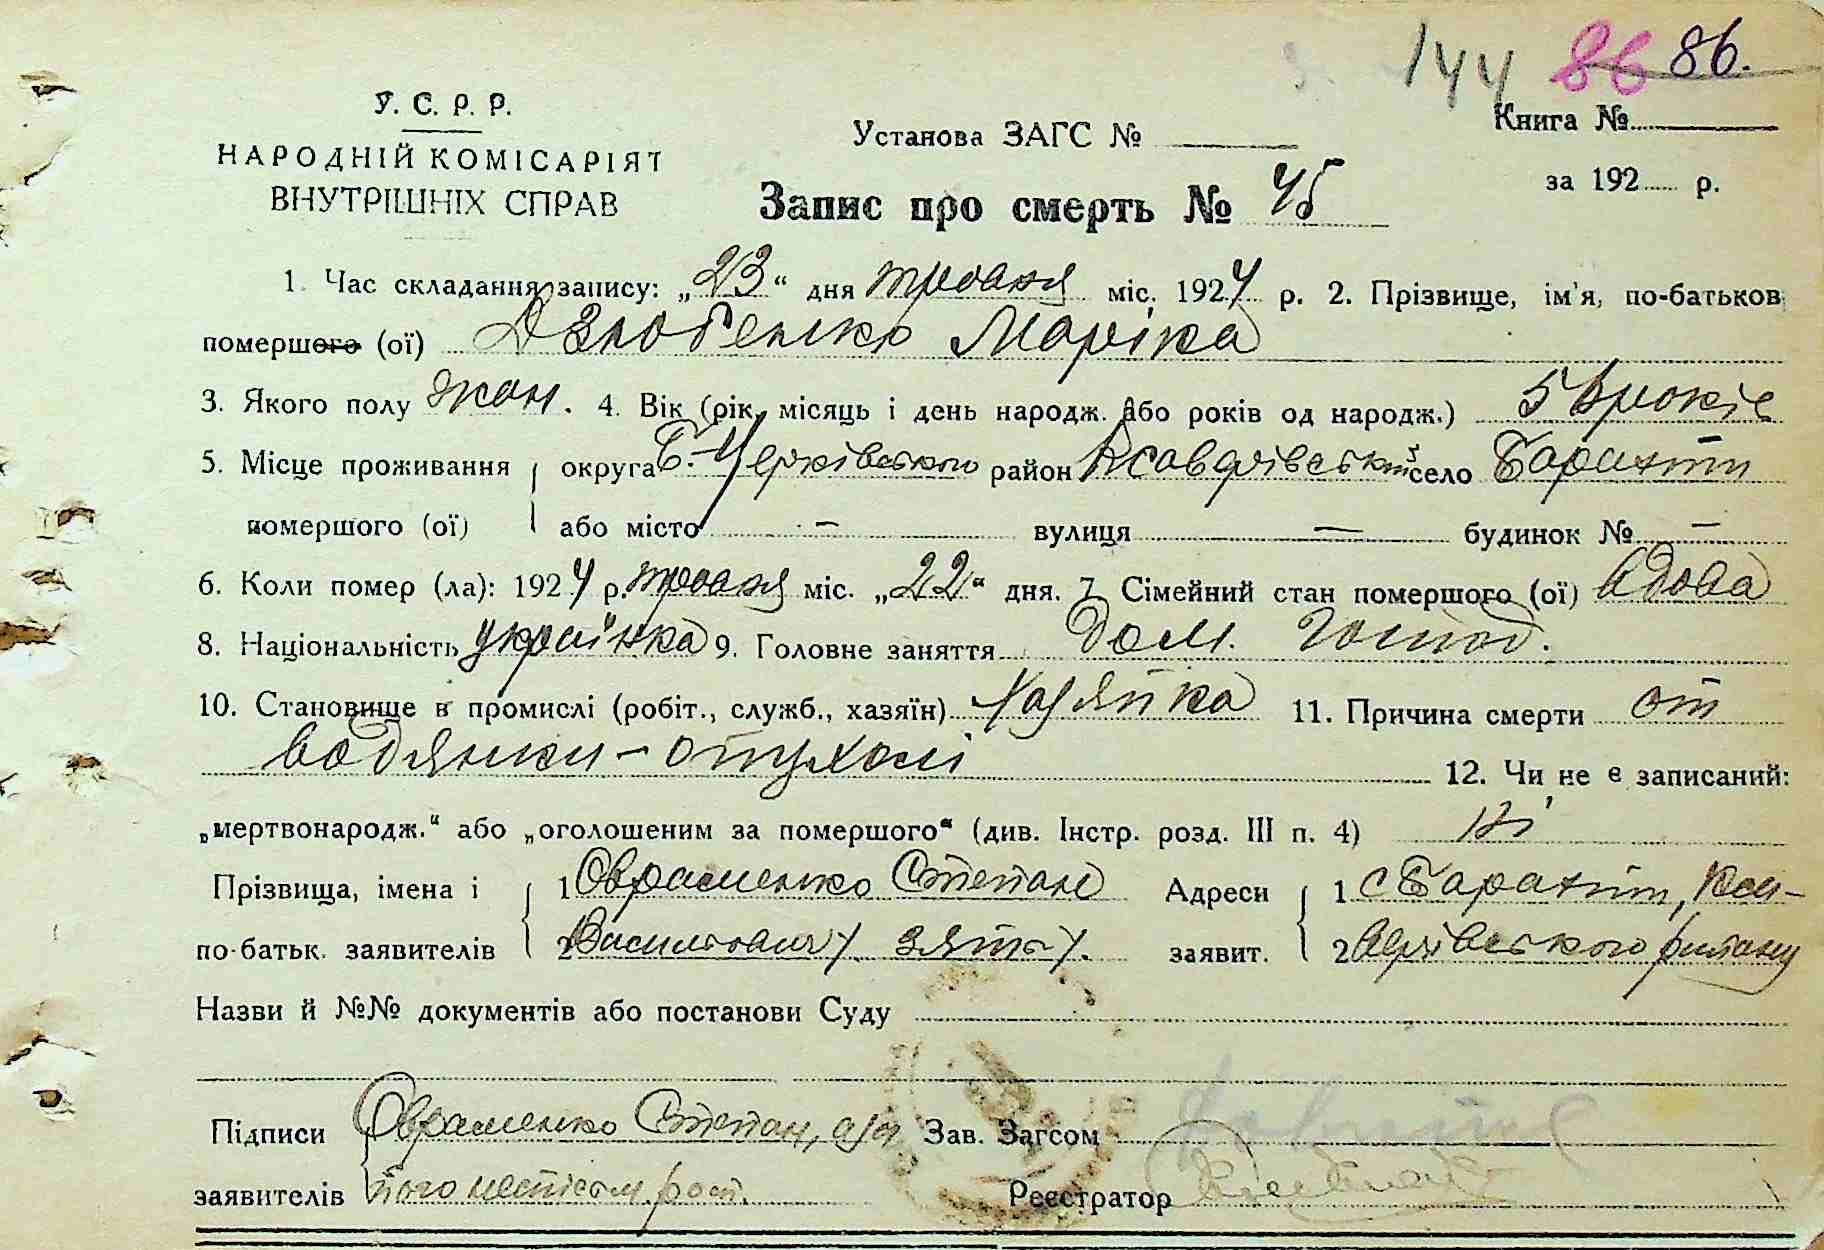 144 86 86.
У. С. Р. Р.
НАРОДНІЙ КОМІСАРІЯТ
ВНУТРІШНІХ СПРАВ
Установа ЗАГС №
Книга №
за 192 р.
Запис про смерть № 45
1. Час складання запису: „23“ дня травня міс. 1924 р. 2. Прізвище, ім'я, по-батьков
помершого (ої) Дзюбенко Маріка
3. Якого полу жон. 4. Вік (рік, місяць і день народж. або років од народж.) 58 років
5. Місце проживання округа Б.-Церківського район Ксаверівський село Барахти
помершого (ої) або місто — вулиця — будинок № —
6. Коли помер (ла): 1924 р. травня міс. „22“ дня. 7. Сімейний стан помершого (ої) вдова
8. Національність українка 9. Головне заняття дом. господ.
10. Становище в промислі (робіт., служб., хазяїн) хазяйка 11. Причина смерти от
водянки - опухолі
12. Чи не є записаний:
„мертвонародж.“ або „оголошеним за помершого“ (див. Інстр. розд. III п. 4) ні
Прізвища, імена і 1 Овраменко Степан Адреси 1 с Барахти, Кса-
по-батьк. заявителів 2 Васильович /. зять /. заявит. 2 верівського району
Назви й №№ документів або постанови Суду
Підписи Овраменко Степан, Зав. Загсом
заявителів Реєстратор